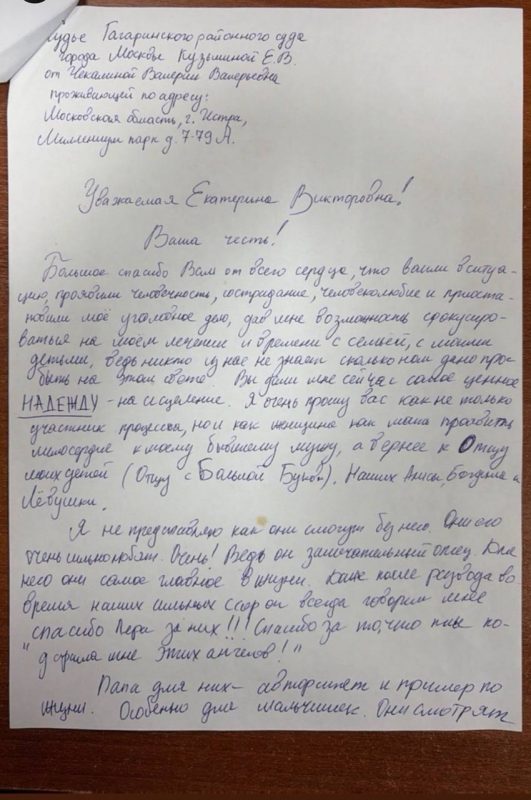 Судье Гагаринского районного суда
города Москвы Кузьминой Е.В.
от Чекалиной Валерии Валерьевны
проживающей по адресу:
Московская область, г. Истра,
Миллениум парк д. 7-79 А.
Уважаемая Екатерина Викторовна!
Ваша честь!
Большое спасибо Вам от всего сердца, что вошли в ситуа-
цию, проявили человечность, сострадание, человеколюбие и приоста-
новили моё уголовное дело, дав мне возможность сфокусиро-
ваться на моем лечении и времени с семьей, с моими
детьми, ведь никто из нас не знает сколько нам дано про-
быть на этом свете. Вы дали мне сейчас самое ценное
НАДЕЖДУ - на исцеление. Я очень прошу вас как не только
участник процесса, но и как женщина как мама проявить
милосердие к моему бывшему мужу, а вернее к Отцу
моих детей (Отцу с Большой Буквы). Наших Алисы, Богдана и
Лёвушки.
Я не представляю как они смогут без него. Они его
очень сильно любят. Очень! Ведь он замечательный отец. Для
него они самое главное в жизни. Даже после развода во
время наших сильных ссор он всегда говорил мне
спасибо Лера за них!!! Спасибо за то, что ты по-
"дарила мне этих ангелов!"
Папа для них - авторитет и пример по
жизни. Особенно для мальчишек. Они смотрят